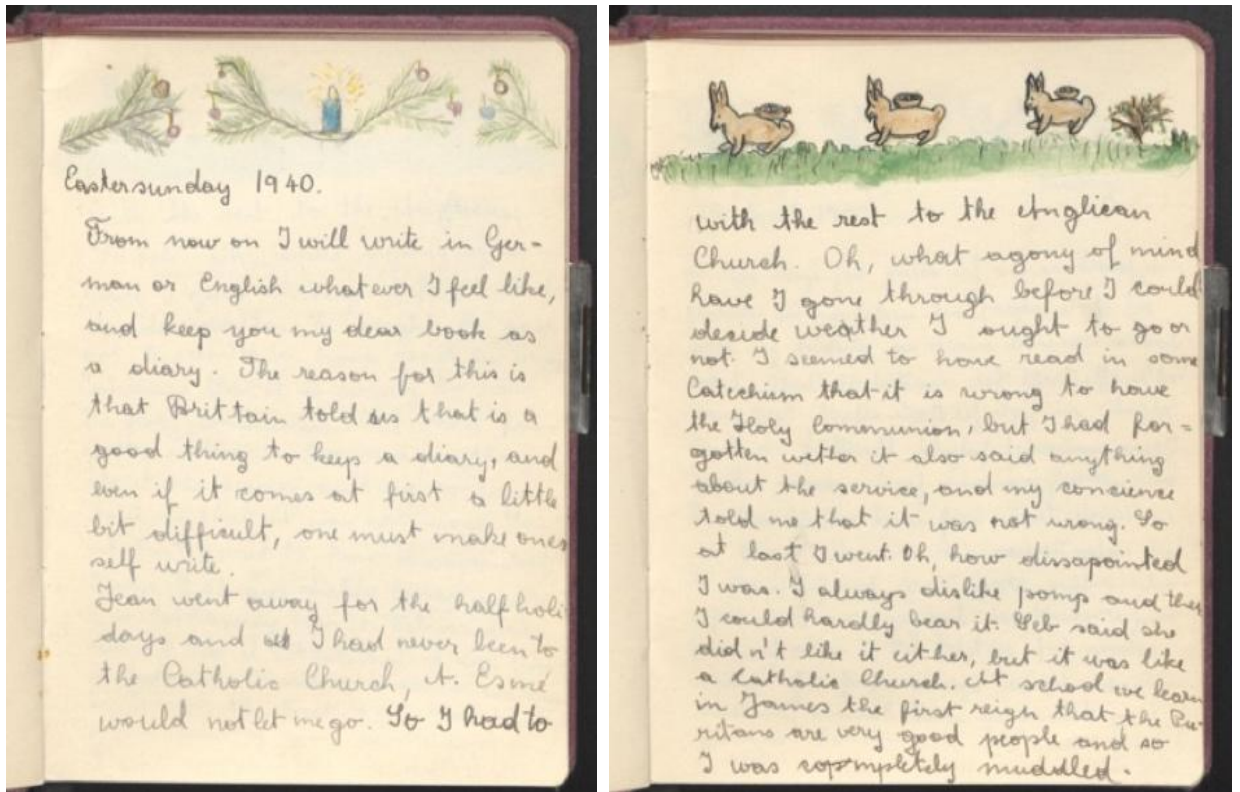 Eastersunday 1940.
From now on I will write in Ger-
man or English what ever I feel like,
and keep you my dear book as
a diary. The reason for this is
that Brittain told us that is a
good thing to keep a diary, and
even if it comes at first a little
bit difficult, one must make ones
self write.
Jean went away for the half holi
days and as I had never been to
the Catholic Church, A. Esmé
would not let me go. So I had to
with the rest to the Anglican
Church. Oh, what agony of mind
have I gone through before I could
decide weather I ought to go or
not. I seemed to have read in some
Catechism that it is wrong to have
the Holy Communion, but I had for=
gotten wether it also said anything
about the service, and my concience
told me that it was not wrong. So
at last I went. Oh, how dissapointed
I was. I always dislike pomp and then
I could hardly bear it. Geb said she
did n't like it either, but it was like
a Catholic Church. At school we learn
in James the first reign that the Pu-
ritans are very good people and so
I was completely muddled.